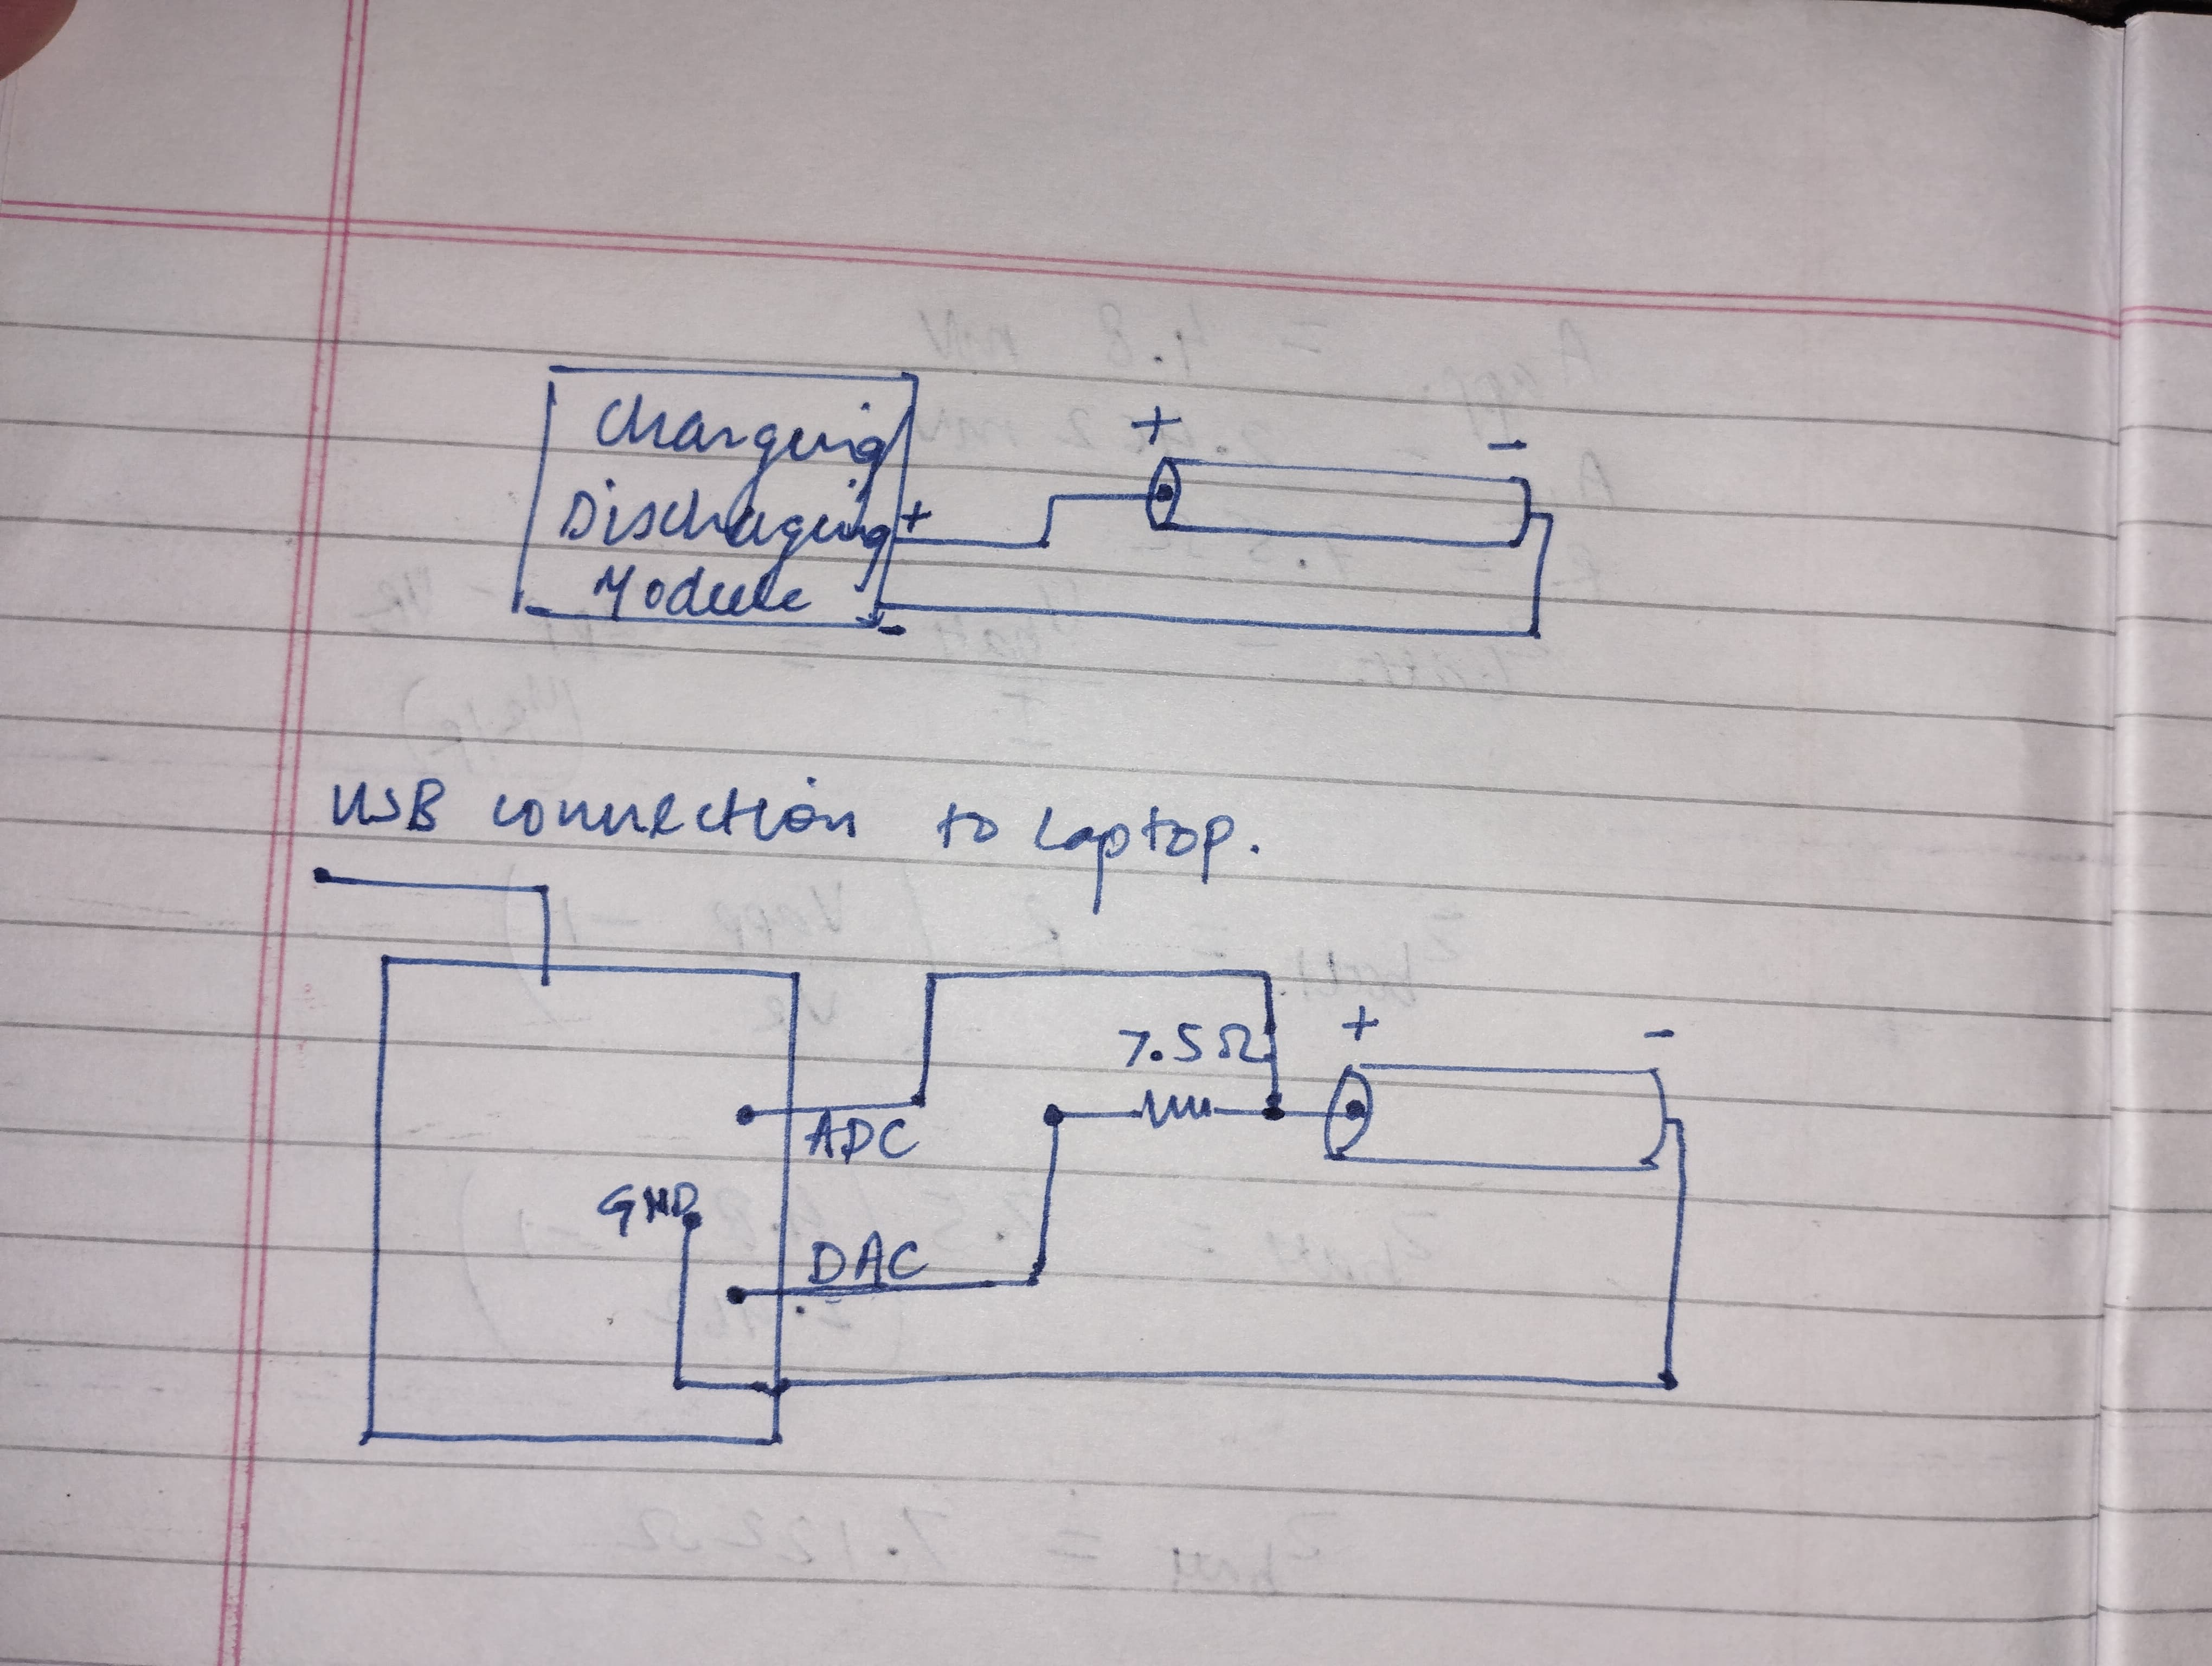 + -
Charging
Discharging +
Module
-
USB connection to Laptop.
7.5Ω + -
ADC
GND
DAC